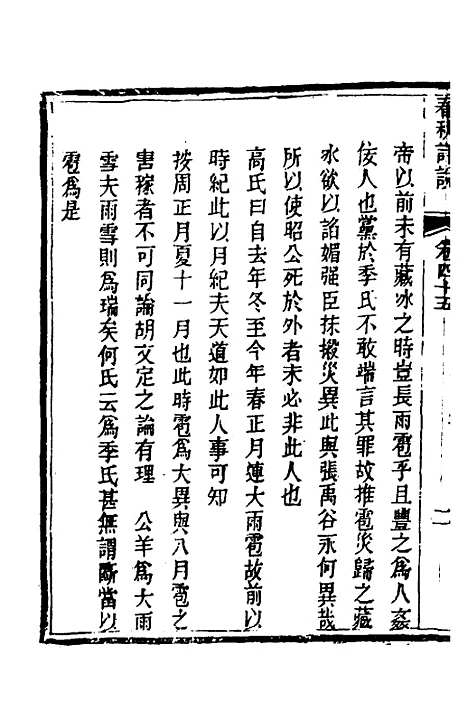 春秋詳說
卷四十五
二
帝以前未有藏冰之時豈長雨雹乎且豐之爲人姦
佞人也黨於季氏不敢端言其罪故推雹災歸之藏
冰欲以諂媚强臣抹摋災異此與張禹谷永何異哉
所以使昭公死於外者未必非此人也
高氏曰自去年冬至今年春正月連大雨雹故前以
時紀此以月紀夫天道如此人事可知
按周正月夏十一月也此時雹爲大異與八月雹之
害稼者不可同論胡文定之論有理　公羊爲大雨
雪夫雨雪則爲瑞矣何氏云爲季氏甚無謂斷當以
雹爲是